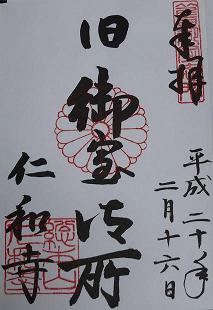 奉拝
平成二十年
二月十六日
旧御室御所
仁和寺